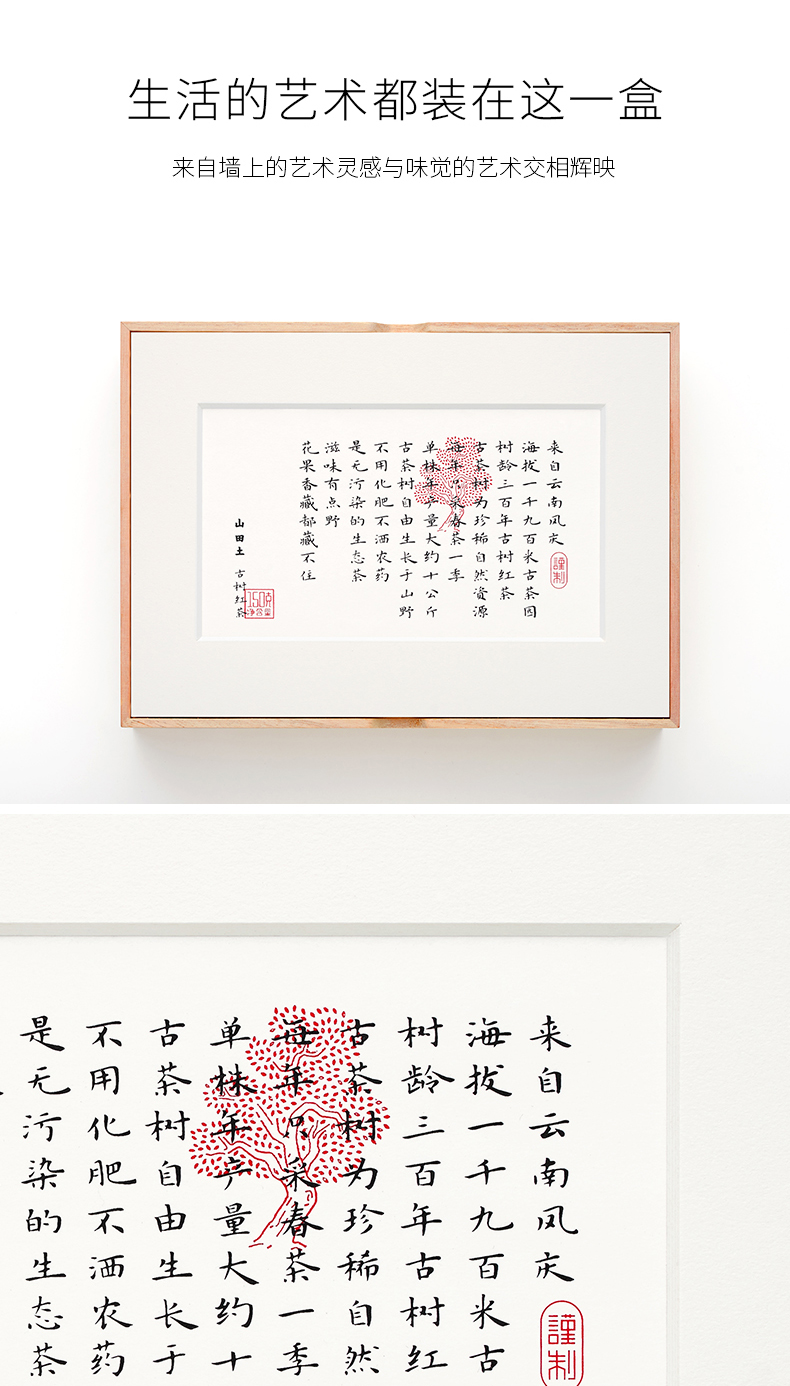 生活的艺术都装在这一盒
来自墙上的艺术灵感与味觉的艺术交相辉映
来自云南凤庆
謹制
海拔一千九百米古茶园
树龄三百年古树红茶
古茶树为珍稀自然资源
每年只采春茶一季
单株年产量大约十公斤
古茶树自由生长于山野
不用化肥不洒农药
是无污染的生态茶
滋味有点野
花果香藏都藏不住
山田土 古树红茶
150克
净含量
来自云南凤庆
謹制
海拔一千九百米古
树龄三百年古树红
古茶树为珍稀自然
每年只采春茶一季
单株年产量大约十
古茶树自由生长于
不用化肥不洒农药
是无污染的生态茶